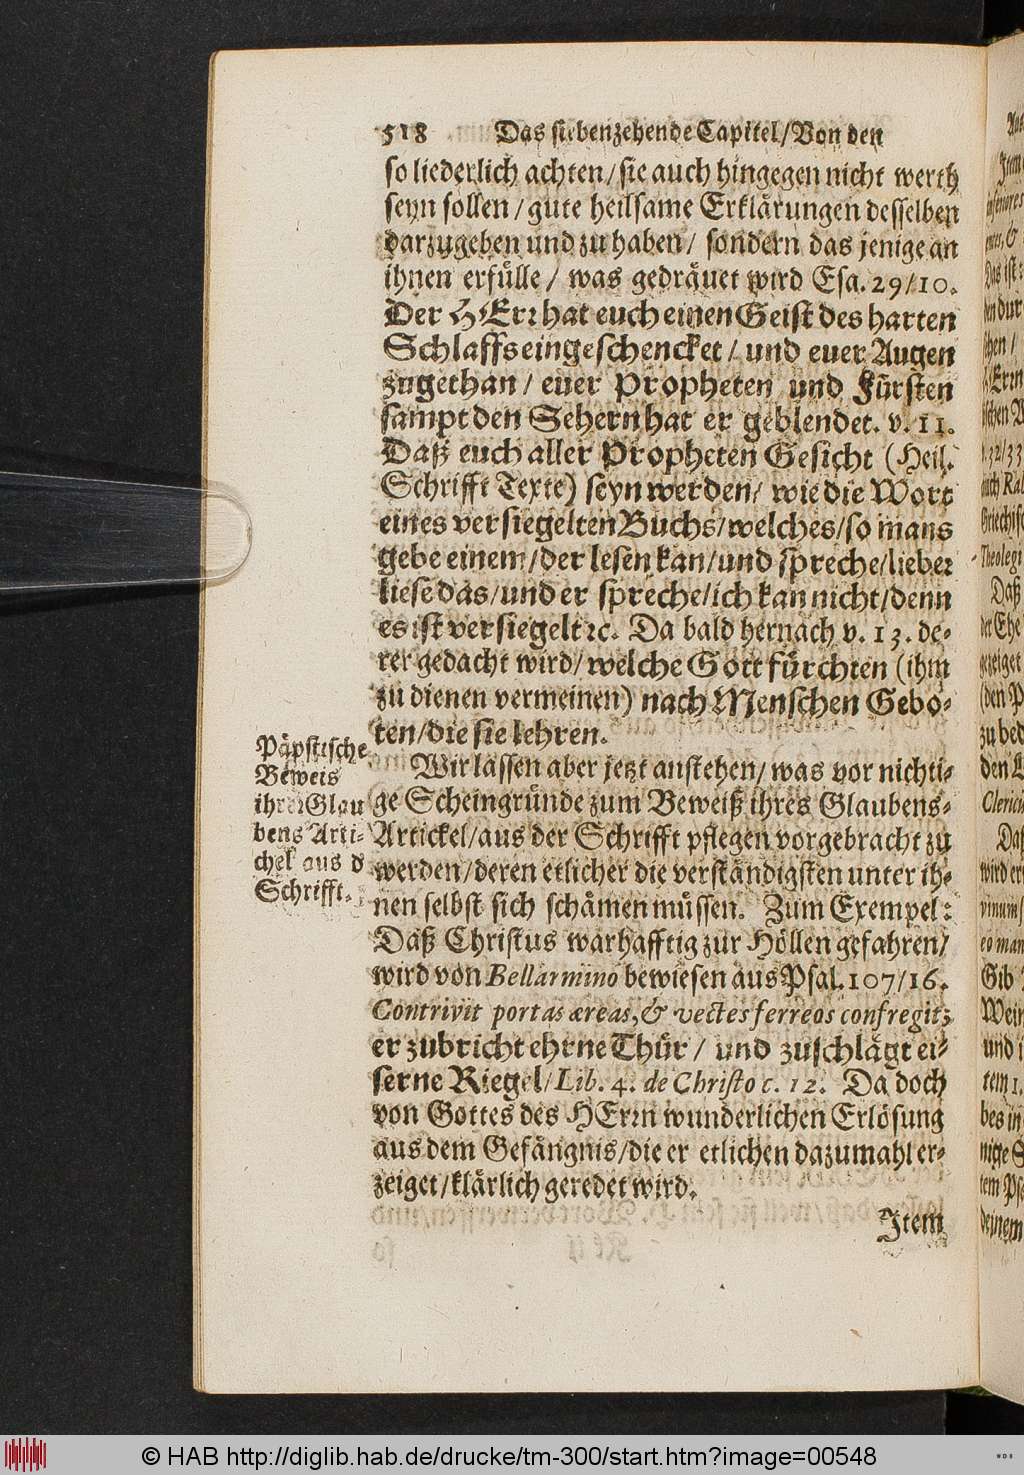 518 Das siebenzehende Capitel/Von den
so liederlich achten/sie auch hingegen nicht werth
seyn sollen/gute heilsame Erklärungen desselben
darzugeben und zu haben/ sondern das jenige an
ihnen erfülle/ was gedräuet wird Esa. 29/10.
Der HErr hat euch einen Geist des harten
Schlaffs eingeschencket/ und euer Augen
zugethan/ euer Propheten und Fürsten
sampt den Sehern hat er geblendet. v. 11.
Daß euch aller Propheten Gesicht (Heil.
Schrifft Texte) seyn werden/ wie die Wort
eines versiegelten Buchs/welches/so mans
gebe einem/der lesen kan/und spreche/lieber
liese das/und er spreche/ich kan nicht/denn
es ist versiegelt ꝛc. Da bald hernach v. 13. de-
rer gedacht wird/welche Gott fürchten (ihm
zu dienen vermeinen) nach Menschen Gebo-
ten/die sie lehren.
Päpstische
Beweis
ihrer Glau
bens Arti-
ckel aus d
Schrifft.
Wir lassen aber jetzt anstehen/was vor nichti-
ge Scheingründe zum Beweiß ihres Glaubens-
Artickel/aus der Schrifft pflegen vorgebracht zu
werden/deren etlicher die verständigsten unter ih-
nen selbst sich schämen müssen. Zum Exempel:
Daß Christus warhafftig zur Höllen gefahren/
wird von Bellarmino bewiesen aus Psal. 107/16.
Contrivit portas æreas, & vectes ferreos confregit;
er zubricht ehrne Thür/ und zuschlägt ei-
serne Riegel/Lib. 4. de Christo c. 12. Da doch
von Gottes des HErrn wunderlichen Erlösung
aus dem Gefängnis/die er etlichen dazumahl er-
zeiget/klärlich geredet wird.
Item
© HAB http://diglib.hab.de/drucke/tm-300/start.htm?image=00548